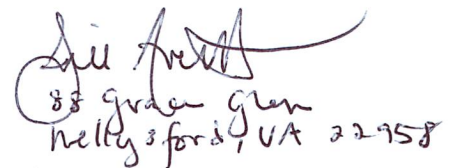 Jill Averitt
88 Grace Glen
Nellysford, VA 22958